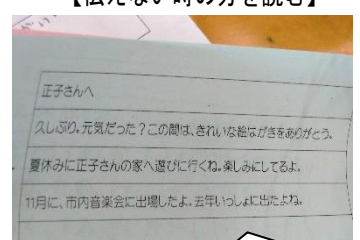 【伝えない時の分を読む】
正子さんへ
久しぶり。元気だった？この間は、きれいな絵はがきをありがとう。
夏休みに正子さんの家へ遊びに行くね。楽しみにしてるよ。
11月に、市内音楽会に出場したよ。去年いっしょに出たよね。